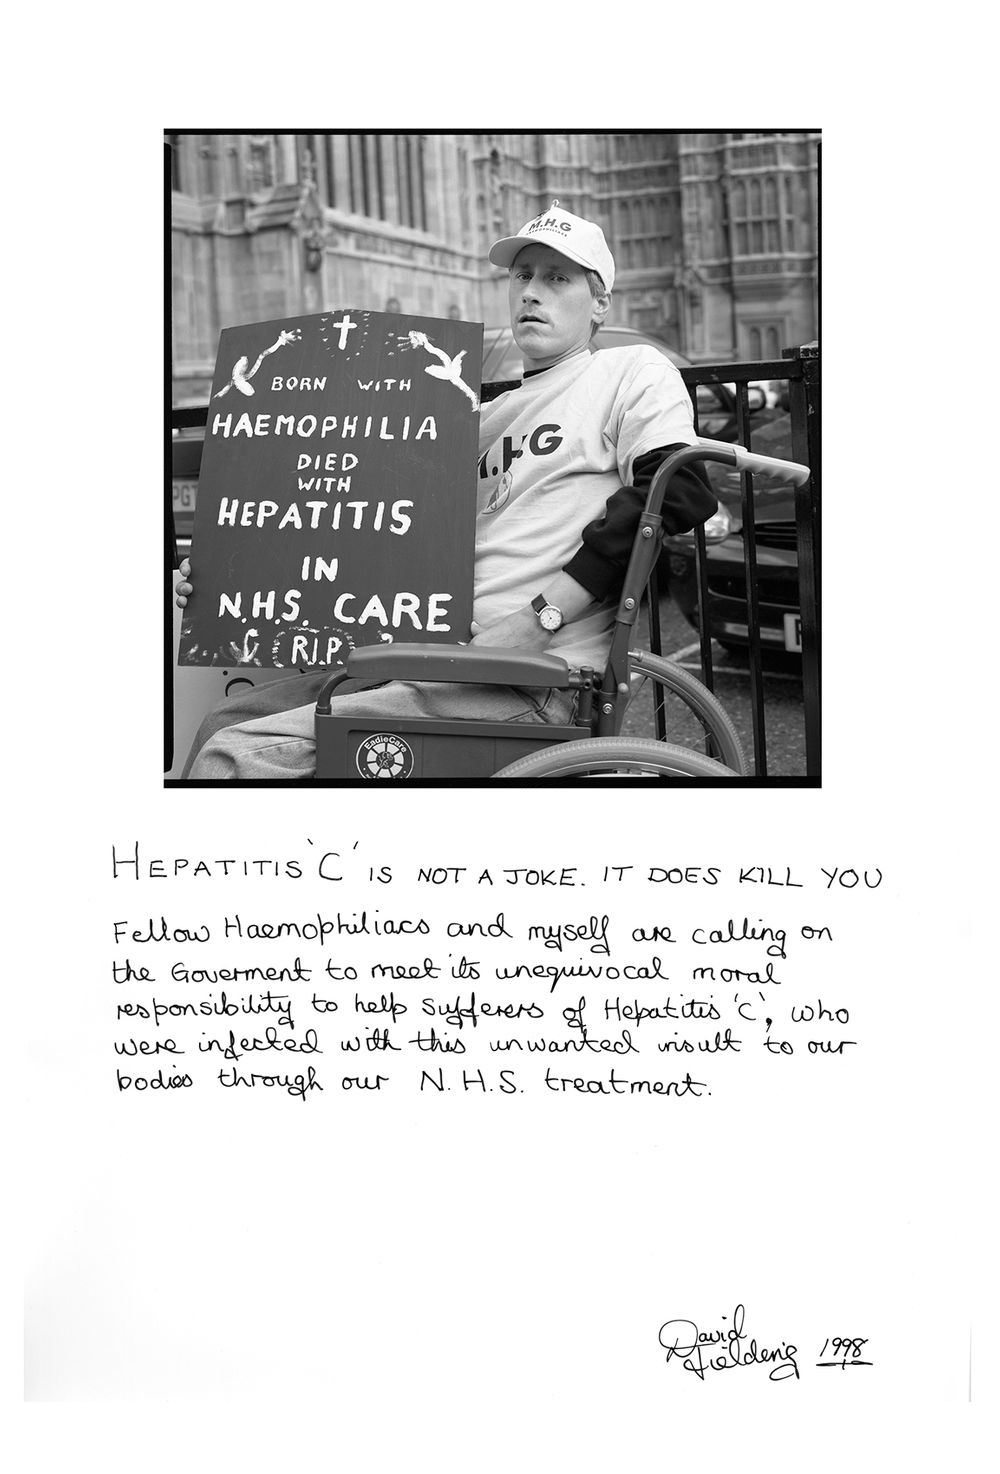 M.H.G
BORN WITH
HAEMOPHILIA
DIED
WITH
HEPATITIS
IN
N.H.S. CARE
R.I.P.
M.HG
EadieCare
HEPATITIS 'C' IS NOT A JOKE. IT DOES KILL YOU
Fellow Haemophiliacs and myself are calling on
the Goverment to meet its unequivocal moral
responsibility to help sufferers of Hepatitis 'C', who
were infected with this unwanted insult to our
bodies through our N.H.S. treatment.
David
Fielding 1998